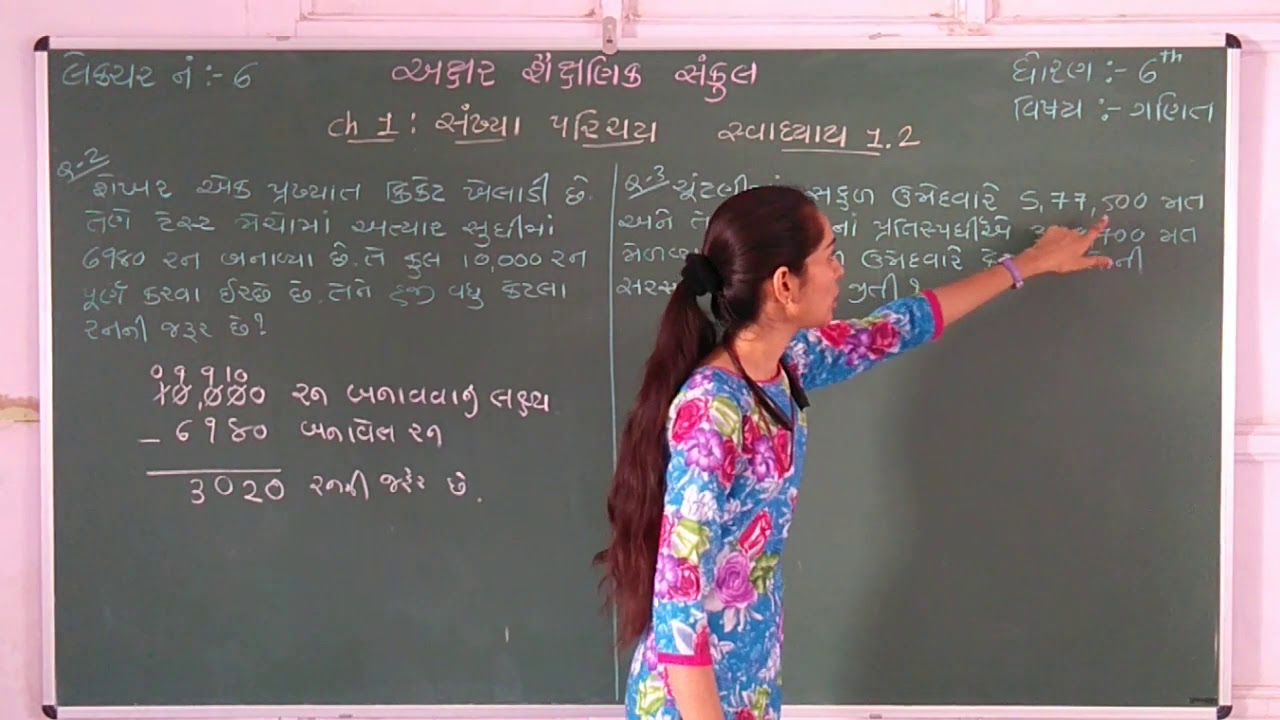 લેક્ચર નં :- 6
અક્ષર શૈક્ષણિક સંકુલ
ધોરણ :- 6th
વિષય :- ગણિત
ch 1 : સંખ્યા પરિચય સ્વાધ્યાય 1.2
પ્ર-2
શેખર એક પ્રખ્યાત ક્રિકેટ ખેલાડી છે.
તેણે ટેસ્ટ મેચોમાં અત્યાર સુધીમાં
6980 રન બનાવ્યા છે. તે કુલ 10,000 રન
પૂર્ણ કરવા ઈચ્છે છે. તેને હજી વધુ કેટલા
રનની જરૂર છે?
0 9 9 10
10,000 રન બનાવવાનું લક્ષ્ય
- 6980 બનાવેલ રન
3020 રનની જરૂર છે.
પ્ર-3 સફળ ઉમેદવારે 5,77,500 મત
અને પ્રતિસ્પર્ધીએ 700 મત
ઉમેદવારે
જીતી?